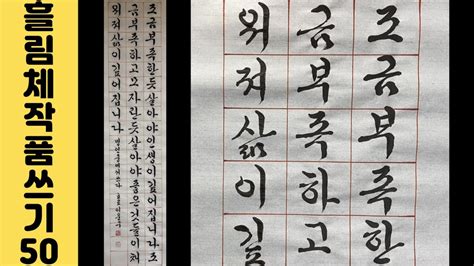 흘림체작품쓰기50
조금부족한듯살아야인생이깊어집니다조
금부족하고모자란듯살아야좋은것들이채
워져삶이깊어집니다
조금부족한
금부족하고
워져삶이깊